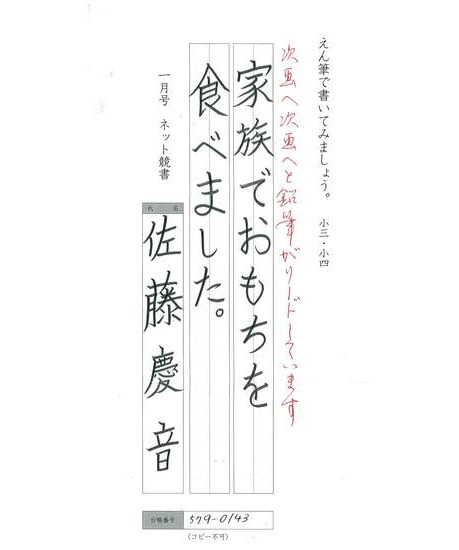 えん筆で書いてみましょう。 小三・小四
次画へ次画へと鉛筆がリードしています
家族でおもちを
食べました。
一月号 ネット競書
氏名
佐藤慶音
合格番号 579-0143
(コピー不可)